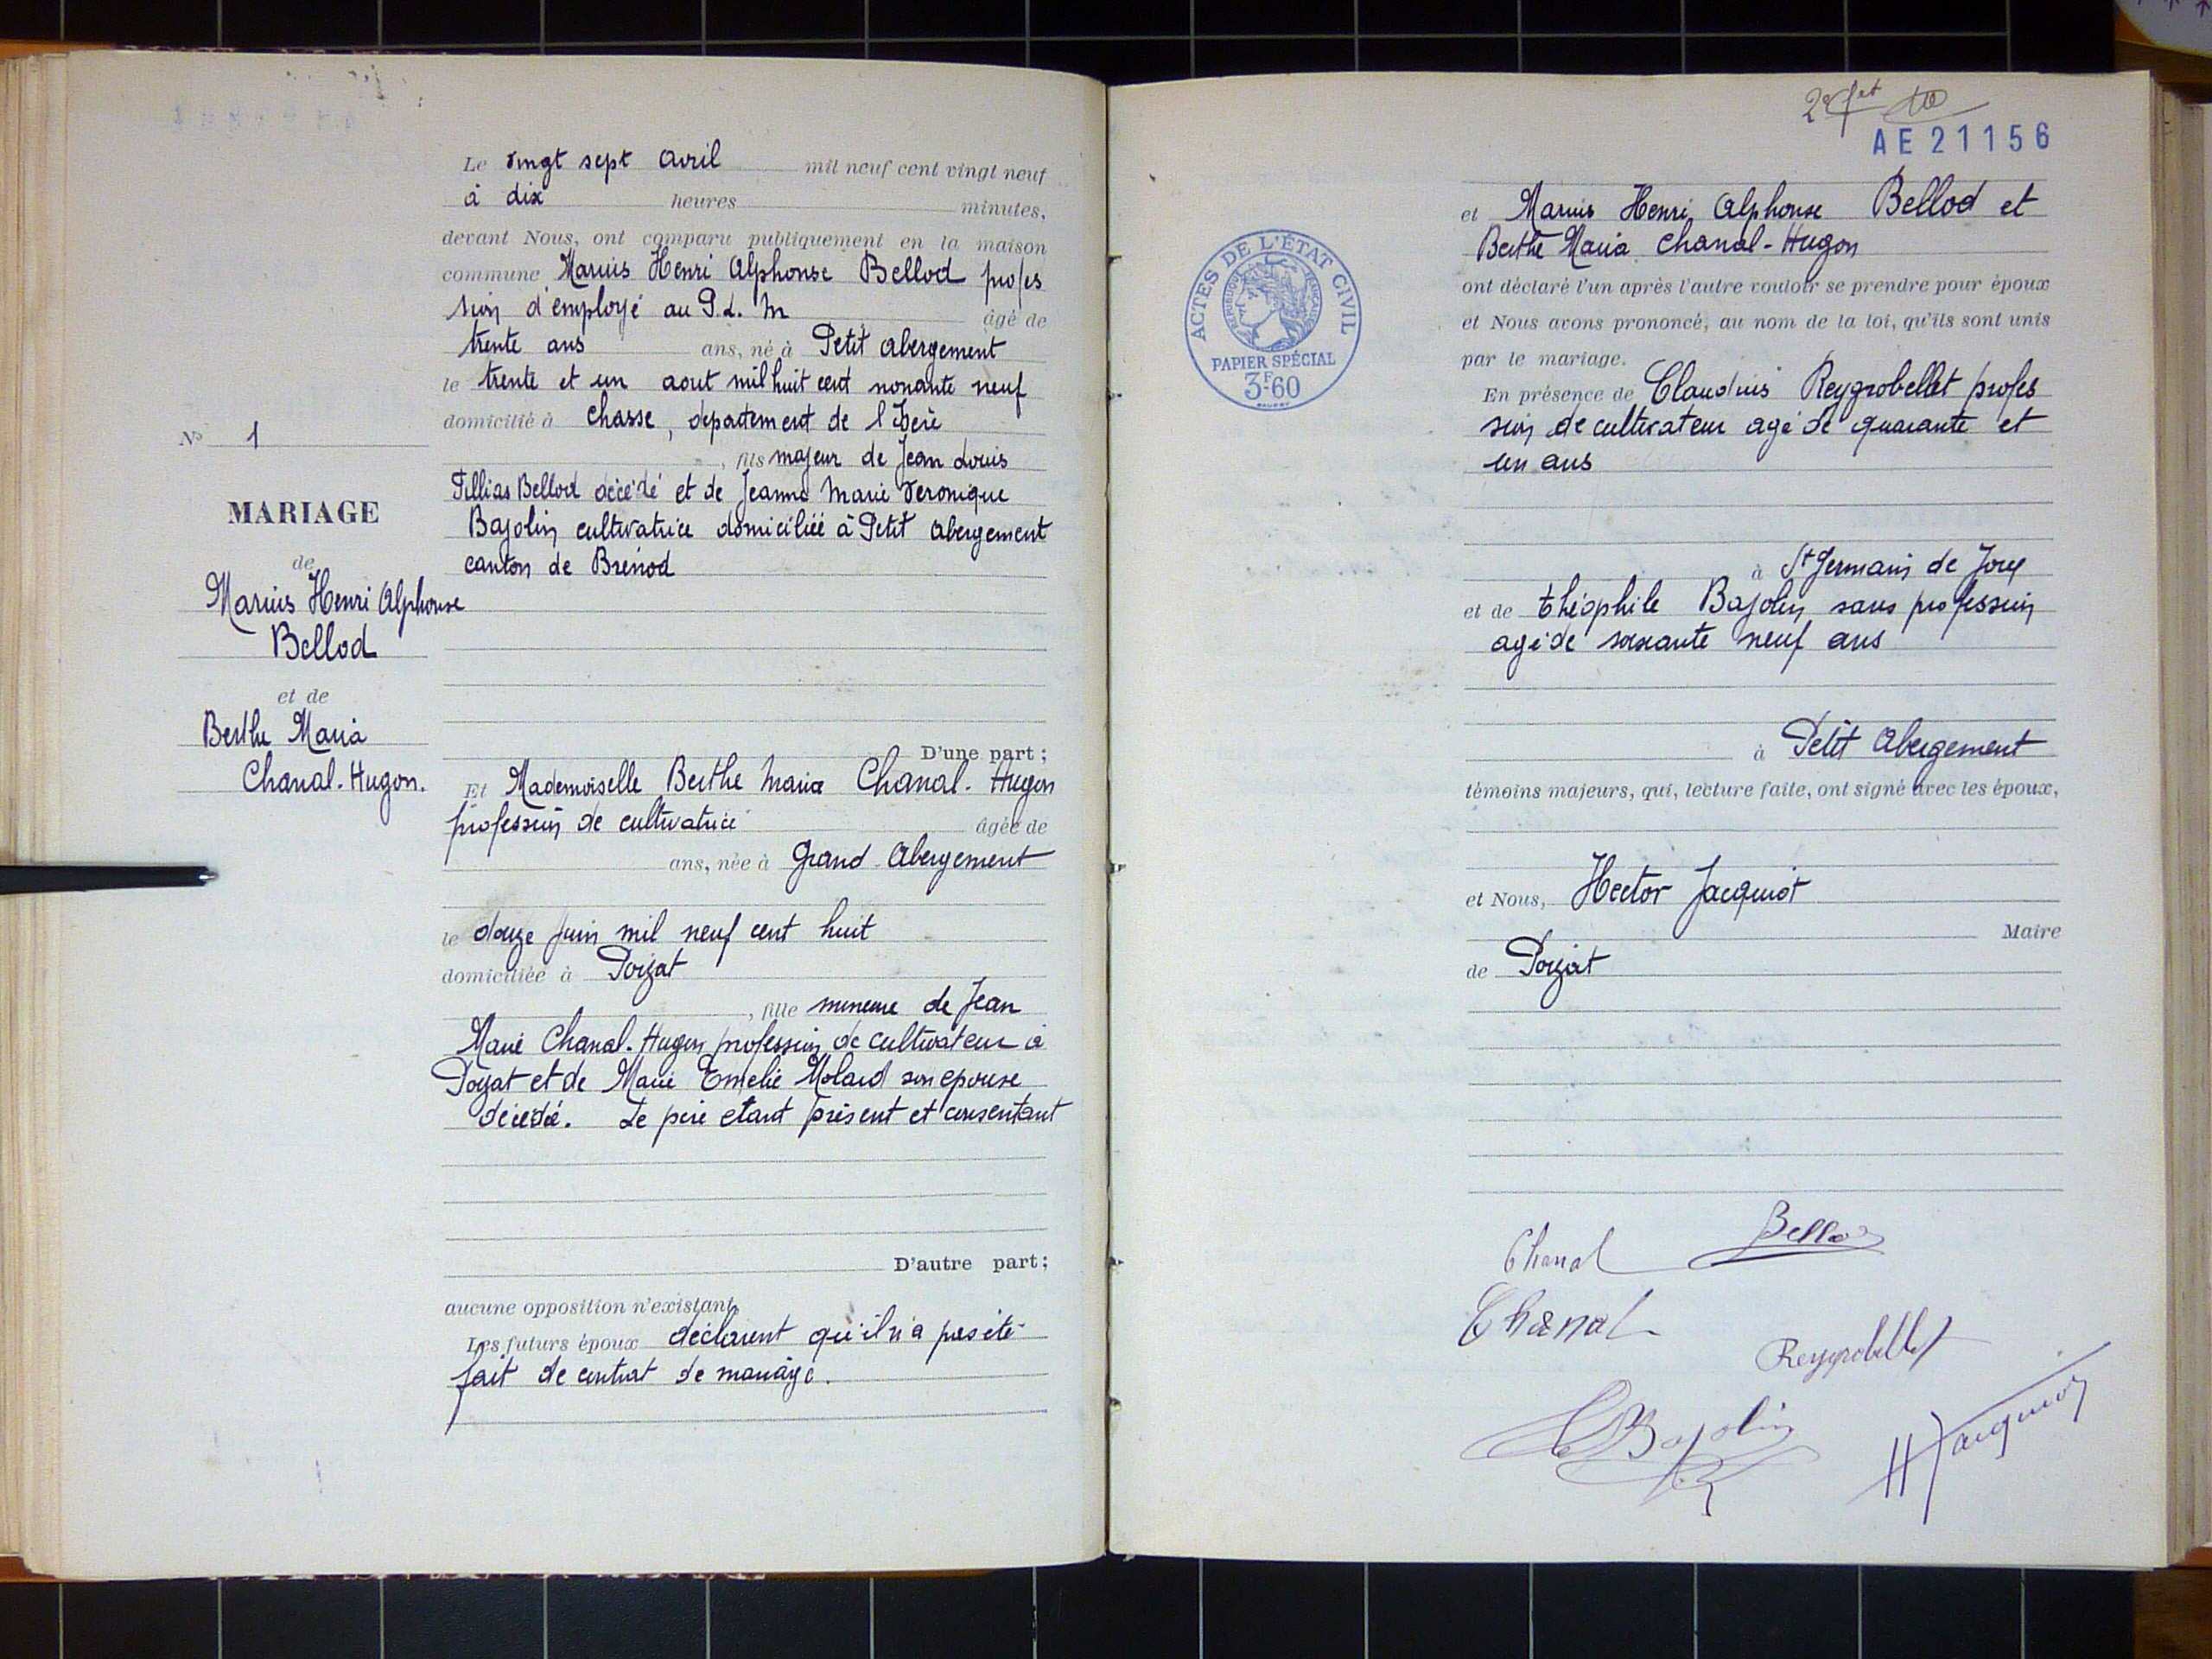 Le vingt sept avril mil neuf cent vingt neuf
à dix heures minutes,
devant Nous, ont comparu publiquement en la maison
commune Marius Henri Alphonse Bellod profes
sion d'employé au P.L.M âgé de
trente ans ans, né à Petit Abergement
le trente et un aout mil huit cent nonante neuf
domicilié à Chasse, departement de l'Isère
, fils majeur de Jean Louis
Fillias Bellod décédé et de Jeanne Marie Veronique
Bajolin cultivatrice domiciliée à Petit Abergement
canton de Brénod
D'une part;
Et Mademoiselle Berthe Maria Chanal-Hugon
profession de cultivatrice âgée de
ans, née à Grand Abergement
le douze juin mil neuf cent huit
domiciliée à Poizat
, fille mineure de Jean
Marie Chanal-Hugon profession de cultivateur à
Poizat et de Marie Emelie Molard son epouse
décédée. Le père etant présent et consentant
D'autre part;
aucune opposition n'existant,
Les futurs époux déclarent qu'il n'a pas été
fait de contrat de mariage.
N° 1
MARIAGE
de
Marius Henri Alphonse
Bellod
et de
Berthe Maria
Chanal-Hugon.
AE21156
ACTES DE L'ÉTAT CIVIL
RÉPUBLIQUE FRANÇAISE
PAPIER SPÉCIAL
3F60
et Marius Henri Alphonse Bellod et
Berthe Maria Chanal-Hugon
ont déclaré l'un après l'autre vouloir se prendre pour époux
et Nous avons prononcé, au nom de la loi, qu'ils sont unis
par le mariage.
En présence de Claudius Reygrobellet profes
sion de cultivateur agé de quarante et
un ans
à St Germain de Joux
et de théophile Bajolin sans profession
agé de soixante neuf ans
à Petit Abergement
témoins majeurs, qui, lecture faite, ont signé avec les époux,
et Nous, Hector Jacquiot
Maire
de Poizat
Chanal Bellod
Chanal
Reygrobellet
Bajolin
H Jacquiot